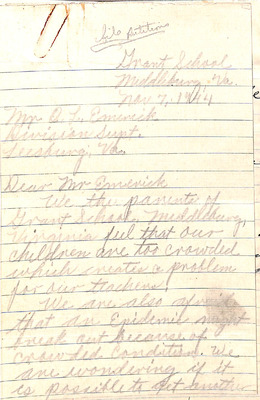 file petitions
Grant School
Middleburg, Va.
Nov 7, 1944
Mr. O. L. Emerick
Division Supt.
Leesburg, Va.
Dear Mr Emerick
We the parents of
Grant School, Middleburg,
Virginia feel that our
children are too crowded
which creates a problem
for our teachers.
We are also
that an Epidemic might
break out because of
crowded condition. We
are wondering if it
is possible to get another